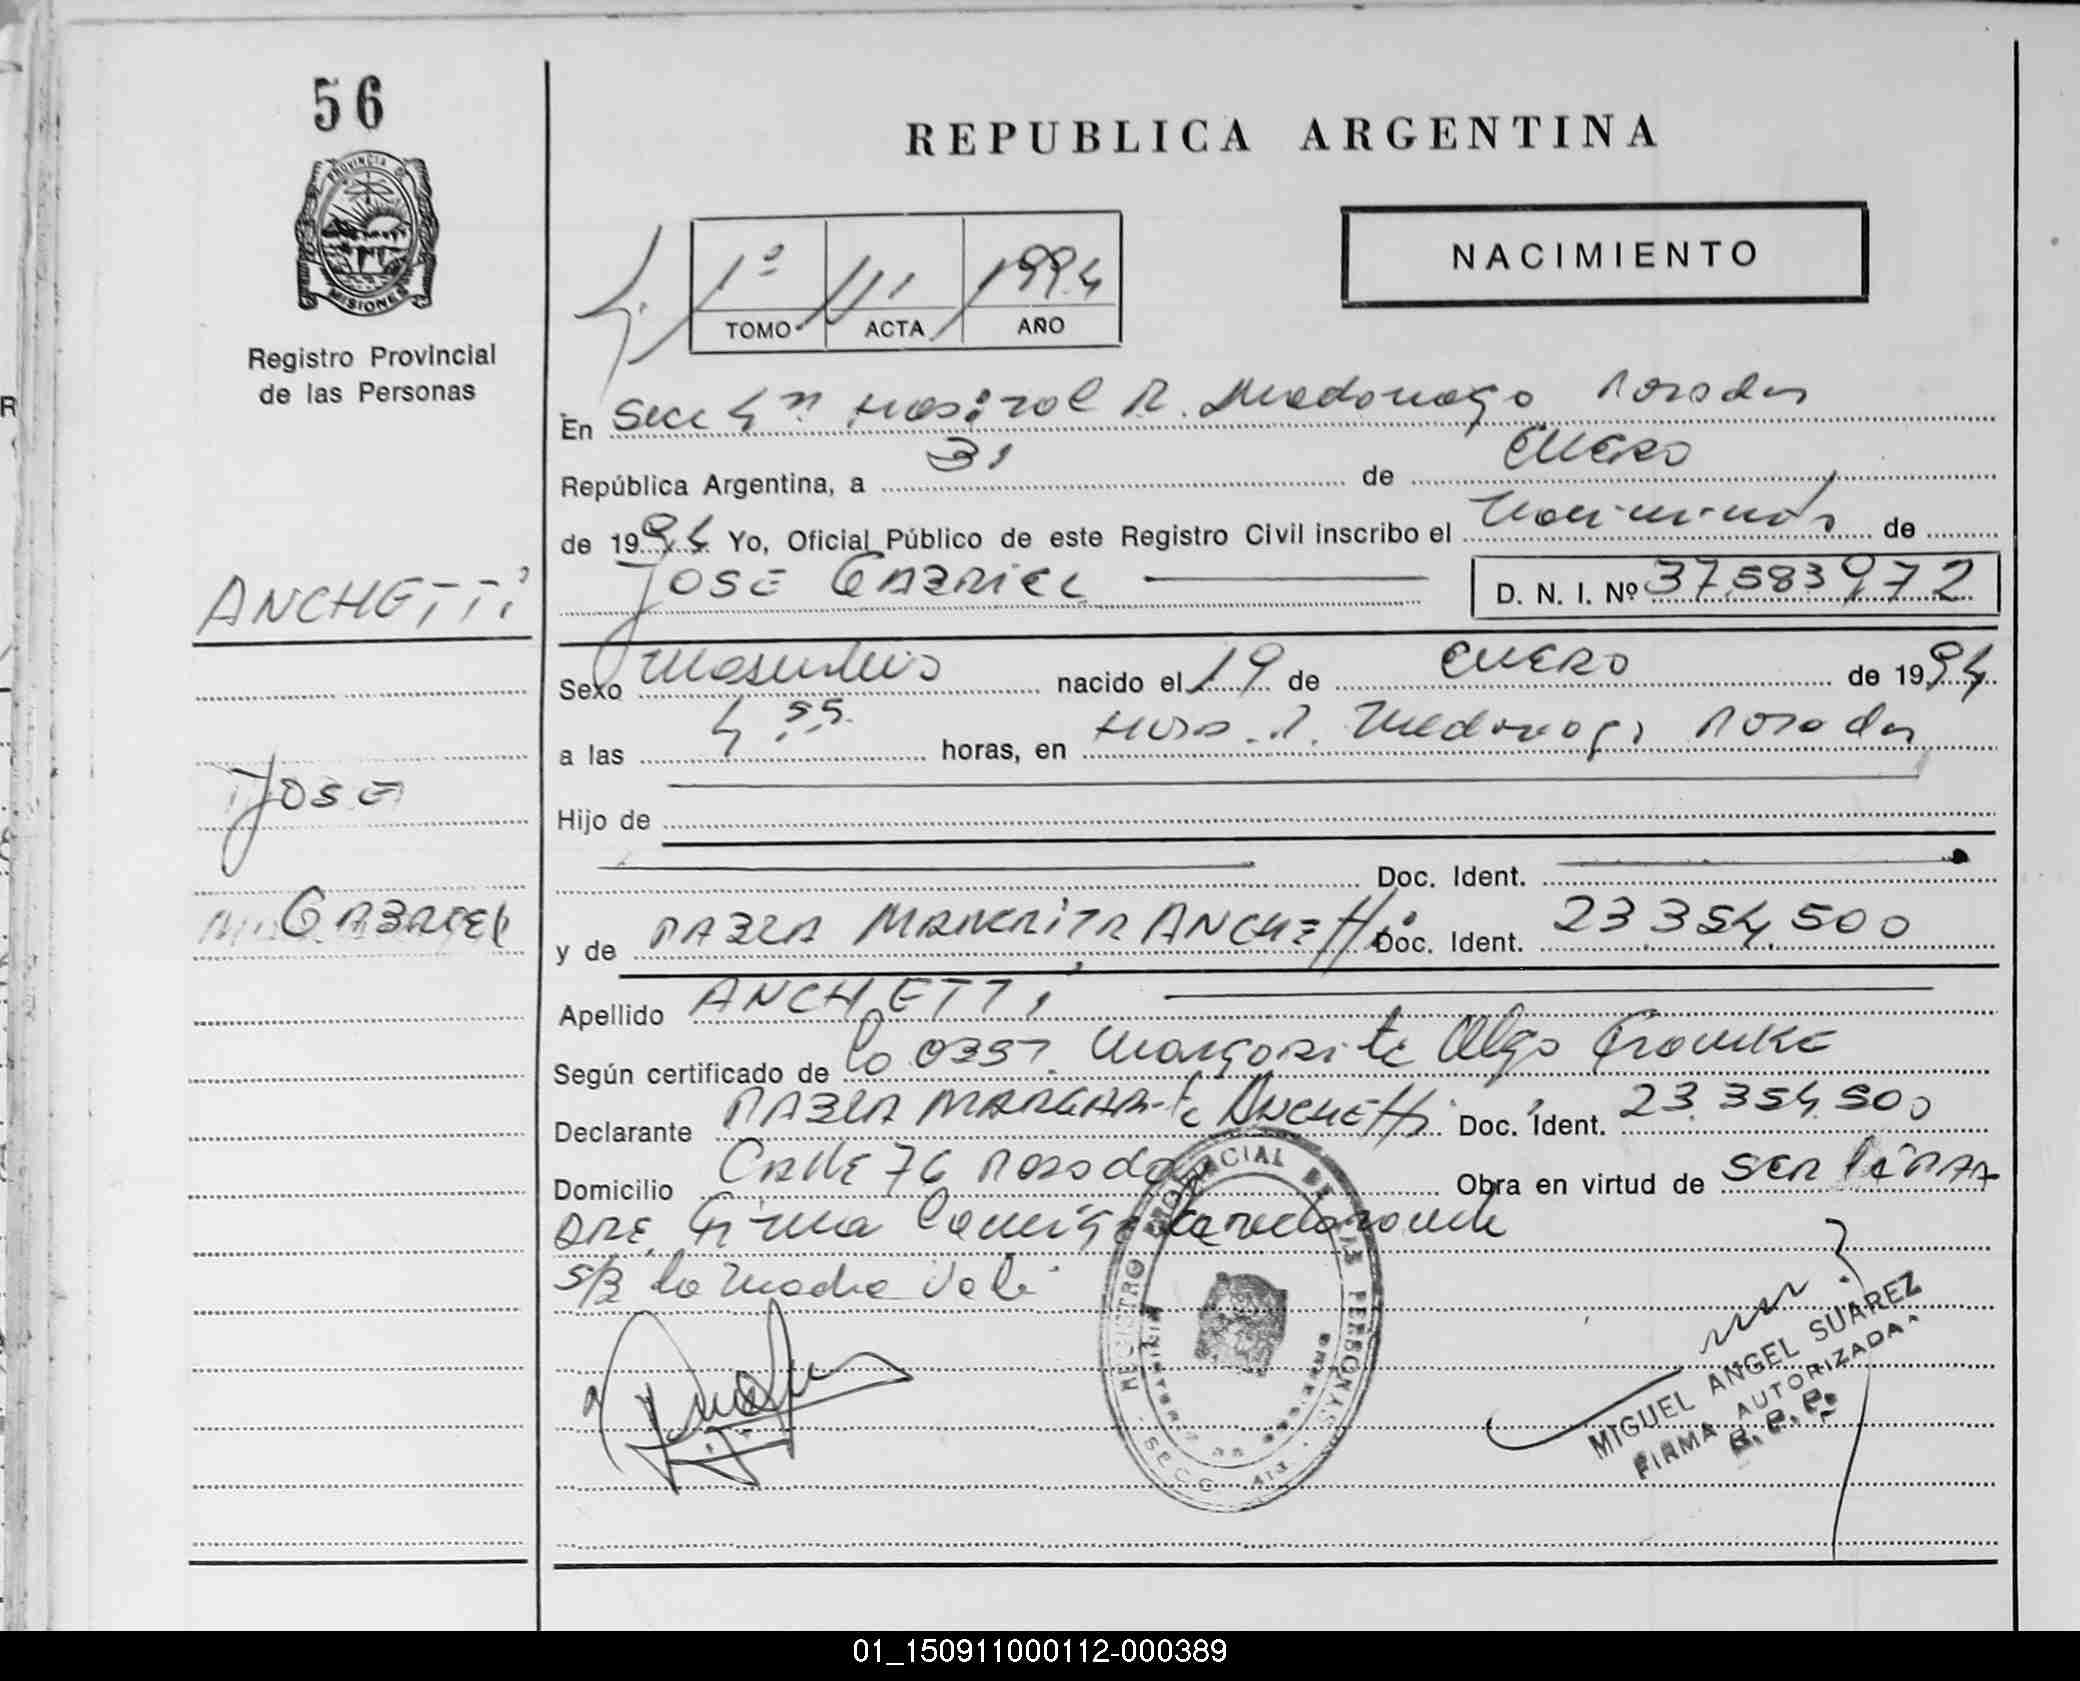 56
PROVINCIA DE
MISIONES
Registro Provincial
de las Personas
REPUBLICA ARGENTINA
NACIMIENTO
1º 111 1994
TOMO ACTA AÑO
En Secc 4ª R. Madariaga Posadas
República Argentina, a 31 de ENERO
de 1994 Yo, Oficial Público de este Registro Civil inscribo el Nacimiento de
JOSE GABRIEL D. N. I. Nº 37.583.972
ANCHETTI
JOSE
GABRIEL
Sexo Masculino nacido el 19 de ENERO de 1994
a las 4,55 horas, en Hosp. R. Madariaga Posadas
Hijo de
Doc. Ident.
y de PABLA MARGRITA ANCHETTI Doc. Ident. 23.354.500
Apellido ANCHETTI
Según certificado de la OBST. Margarita Olga
Declarante PABLA MARGARITA ANCHETTI Doc. Ident. 23.354.500
Domicilio CALLE 76 Posadas Obra en virtud de SER LA MA
DRE. Firma
S/B la Madre Vale
REGISTRO PROVINCIAL DE LAS PERSONAS
MIGUEL ANGEL SUAREZ
FIRMA AUTORIZADA
01_150911000112-000389